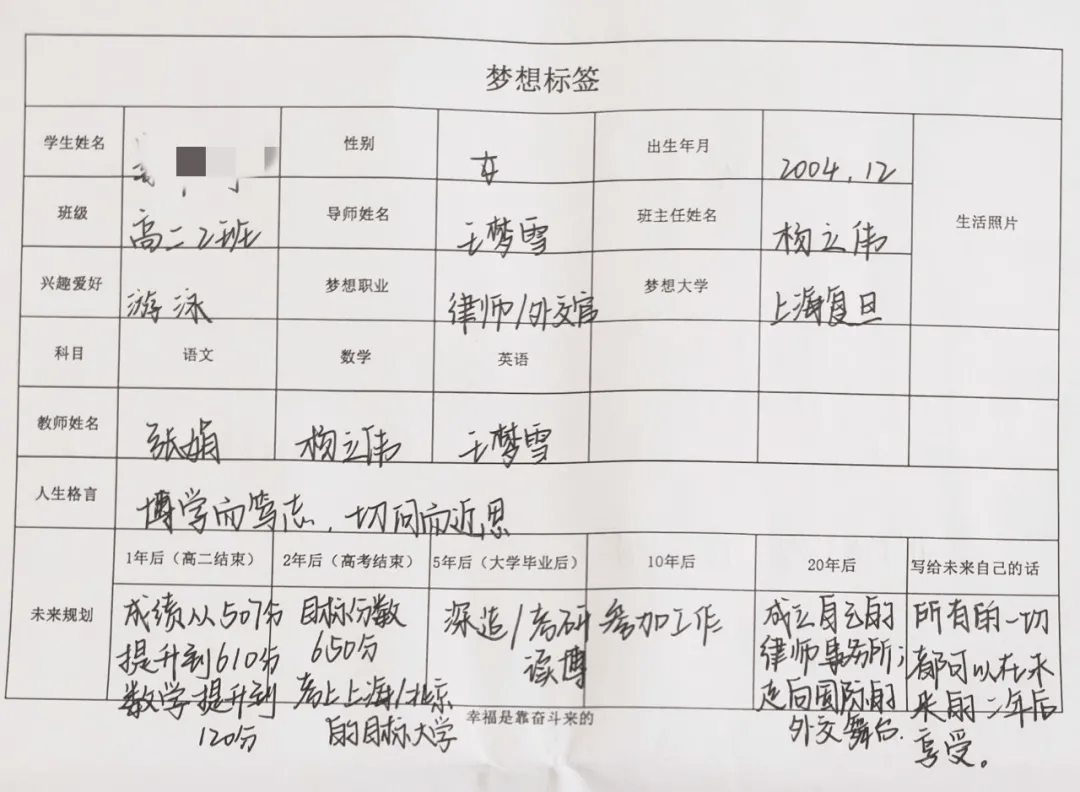 梦想标签
学生姓名 性别 女 出生年月 2004.12 生活照片
班级 高二2班 导师姓名 王梦雪 班主任姓名 杨立伟
兴趣爱好 游泳 梦想职业 律师/外交官 梦想大学 上海复旦
科目 语文 数学 英语
教师姓名 张娟 杨立伟 王梦雪
人生格言 博学而笃志,切问而近思
未来规划
1年后(高二结束)
成绩从507分
提升到610分
数学提升到
120分
2年后(高考结束)
目标分数
650分
考上上海/北京
的目标大学
5年后(大学毕业后)
深造/考研
读博
10年后
参加工作
20年后
成立自己的
律师事务所;
走向国际的
外交舞台.
写给未来自己的话
所有的一切
都可以在未
来的二年后
享受。
幸福是靠奋斗来的